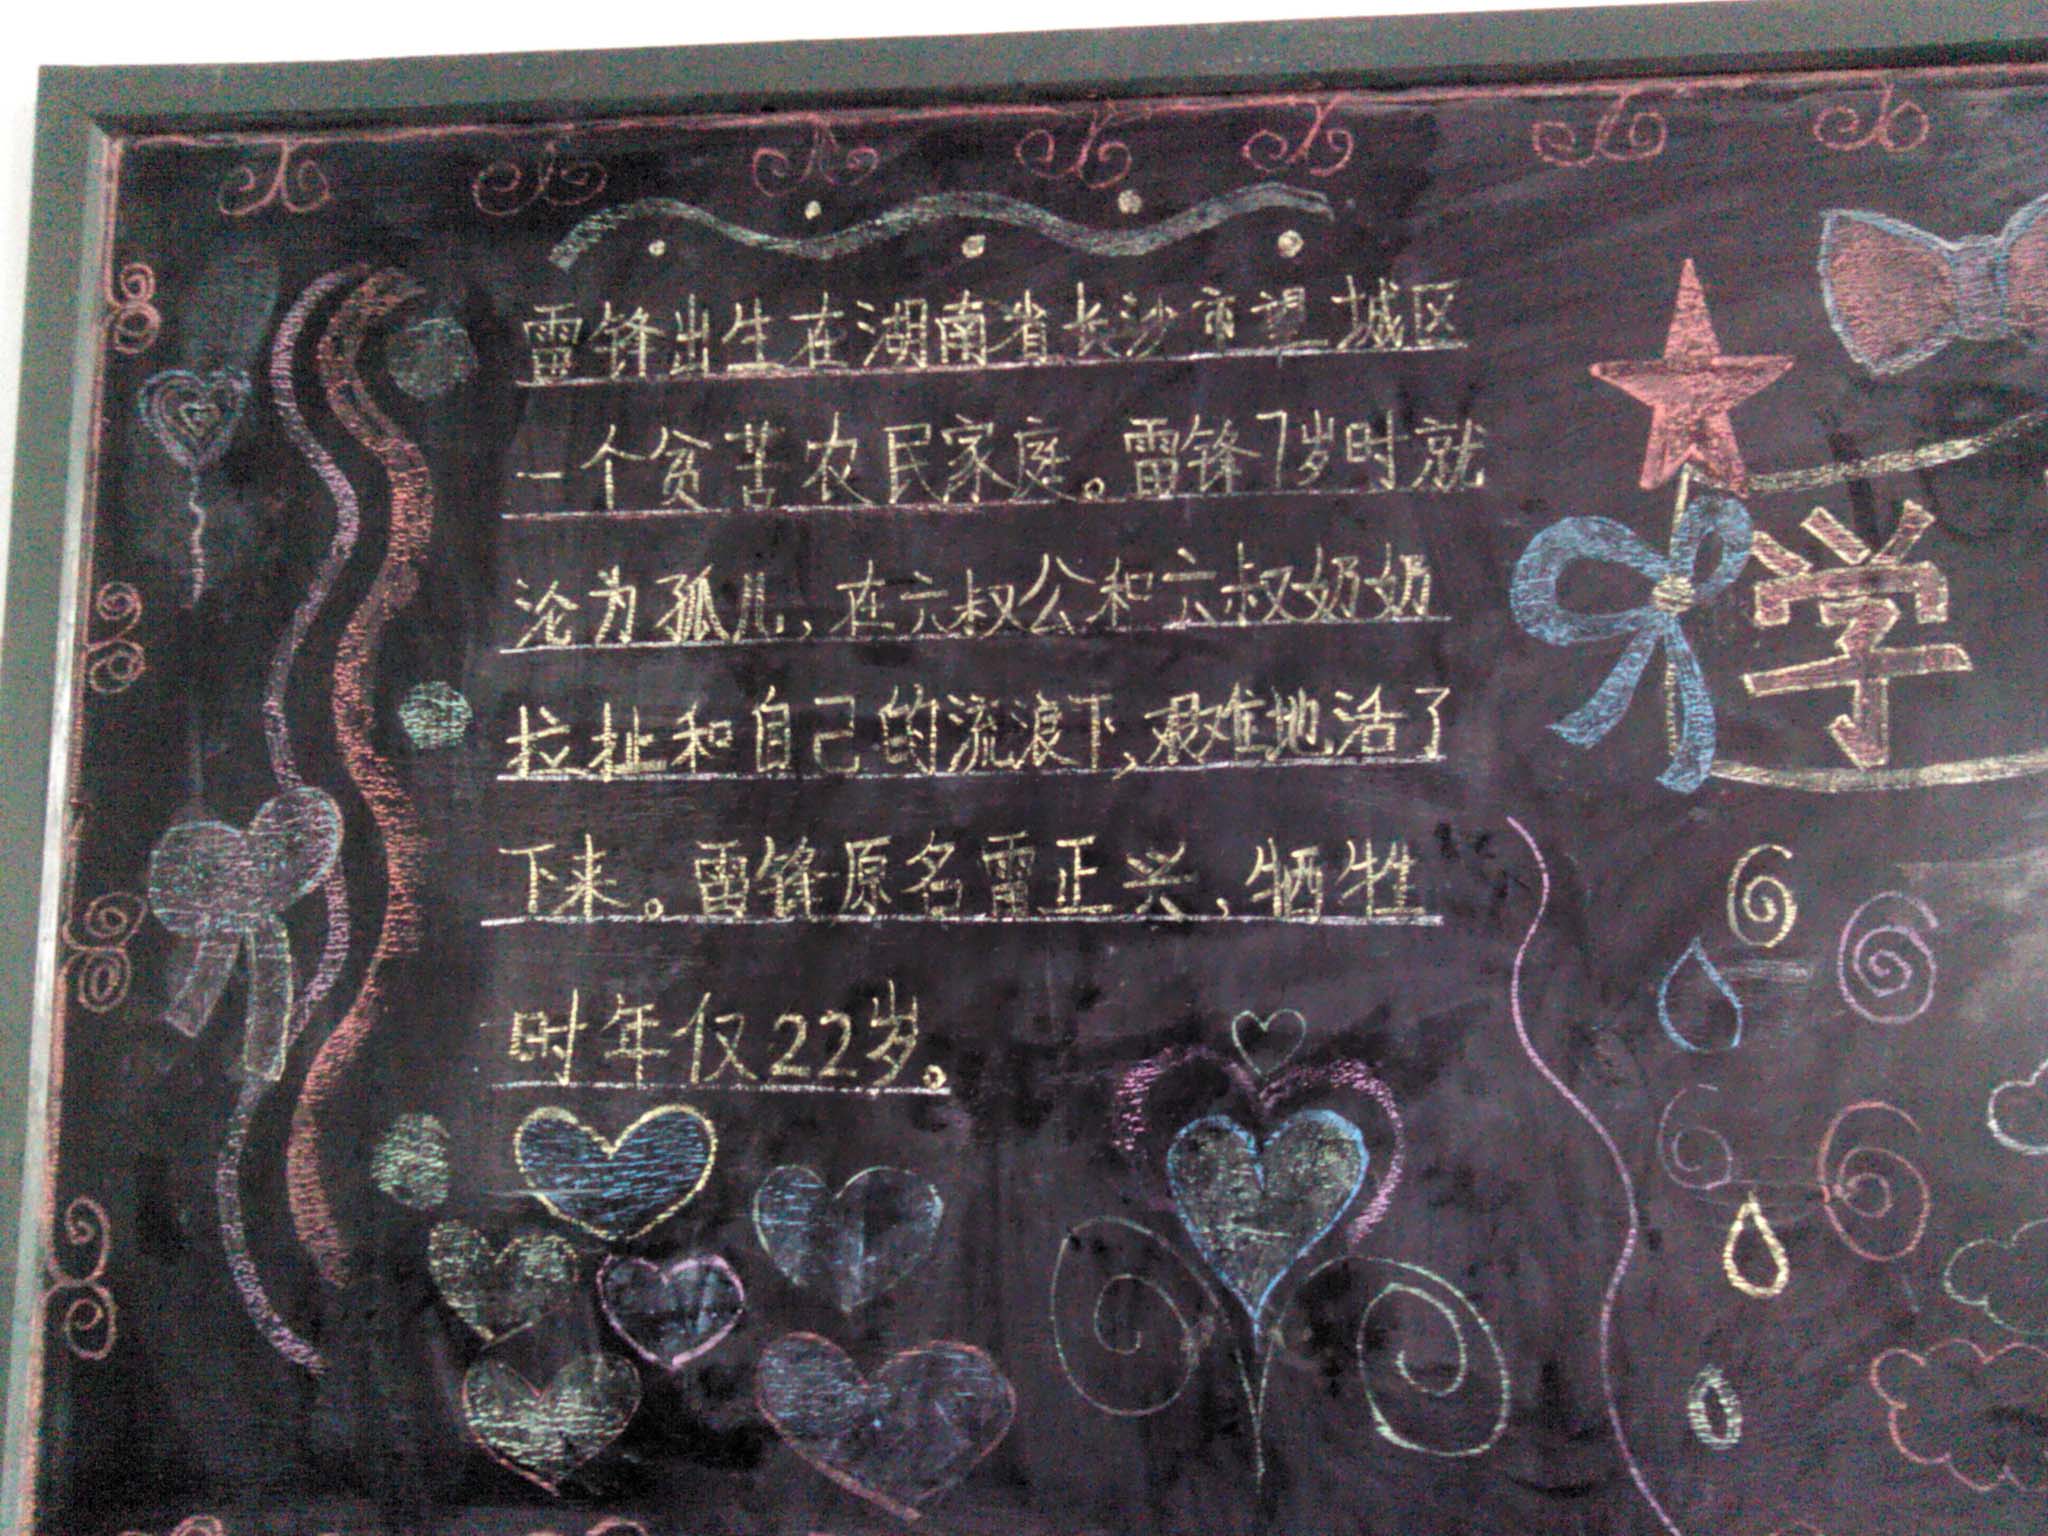 雷锋出生在湖南省长沙市望城区
一个贫苦农民家庭。雷锋7岁时就
沦为孤儿,在六叔公和六叔奶奶
拉扯和自己的流浪下,艰难地活了
下来。雷锋原名雷正兴,牺牲
时年仅22岁。
学